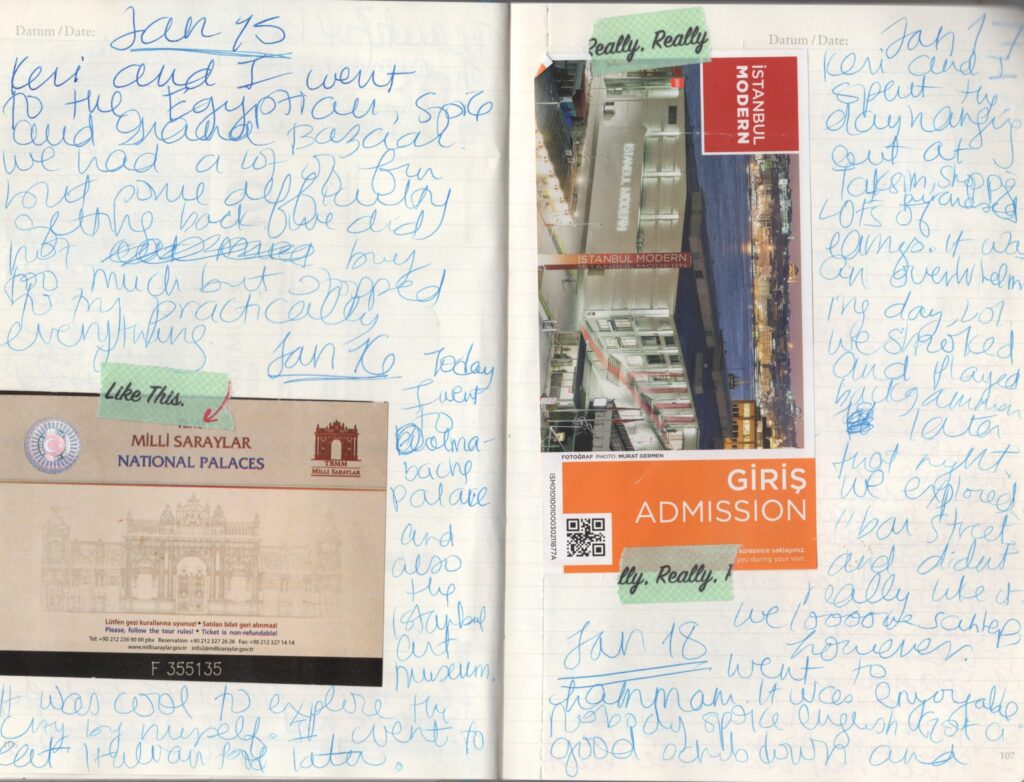 Datum / Date:
Jan 15
Keri and I went
to the Egyptian, Spice
and Grand Bazaar.
we had a lot of fun
but some difficulty
getting back. we did
not buy
too much but stopped
to try practically
everything.
Jan 16
Today
I went
to
Dolma-
bache
Palace
and
also
the
Istanbul
art
museum.
Like This.
MİLLİ SARAYLAR
NATIONAL PALACES
TBMM
MİLLİ SARAYLAR
Lütfen gezi kurallarına uyunuz! • Satılan bilet geri alınmaz!
Please, follow the tour rules! • Ticket is non-refundable!
Tel: +90 212 236 90 00 pbx Reservation: +90 212 327 26 26 Fax: +90 212 327 14 14
www.millisaraylar.gov.tr info2@millisaraylar.gov.tr
F 355135
It was cool to explore the
city by myself. I went to
eat later.
Really, Really
İSTANBUL
MODERN
İSTANBUL MODERN
İSTANBUL MODERN
FOTOĞRAF PHOTO: MURAT GERMEN
GİRİŞ
ADMISSION
süresince saklayınız.
you during your visit.
lly. Really.
Datum / Date:
Jan 17
Keri and I
spent the
day hanging
out at
Taksim, shopped
lots of
earings. It was
an overwhelm
ing day, lol.
we smoked
and played
backgammon
later
that night
we explored
"bar street"
and didnt
really like it
we loooove sahlep
however.
Jan 18
went to
hammam. It was enjoyable
nobody spoke english. Got a
good scrubdown and
107